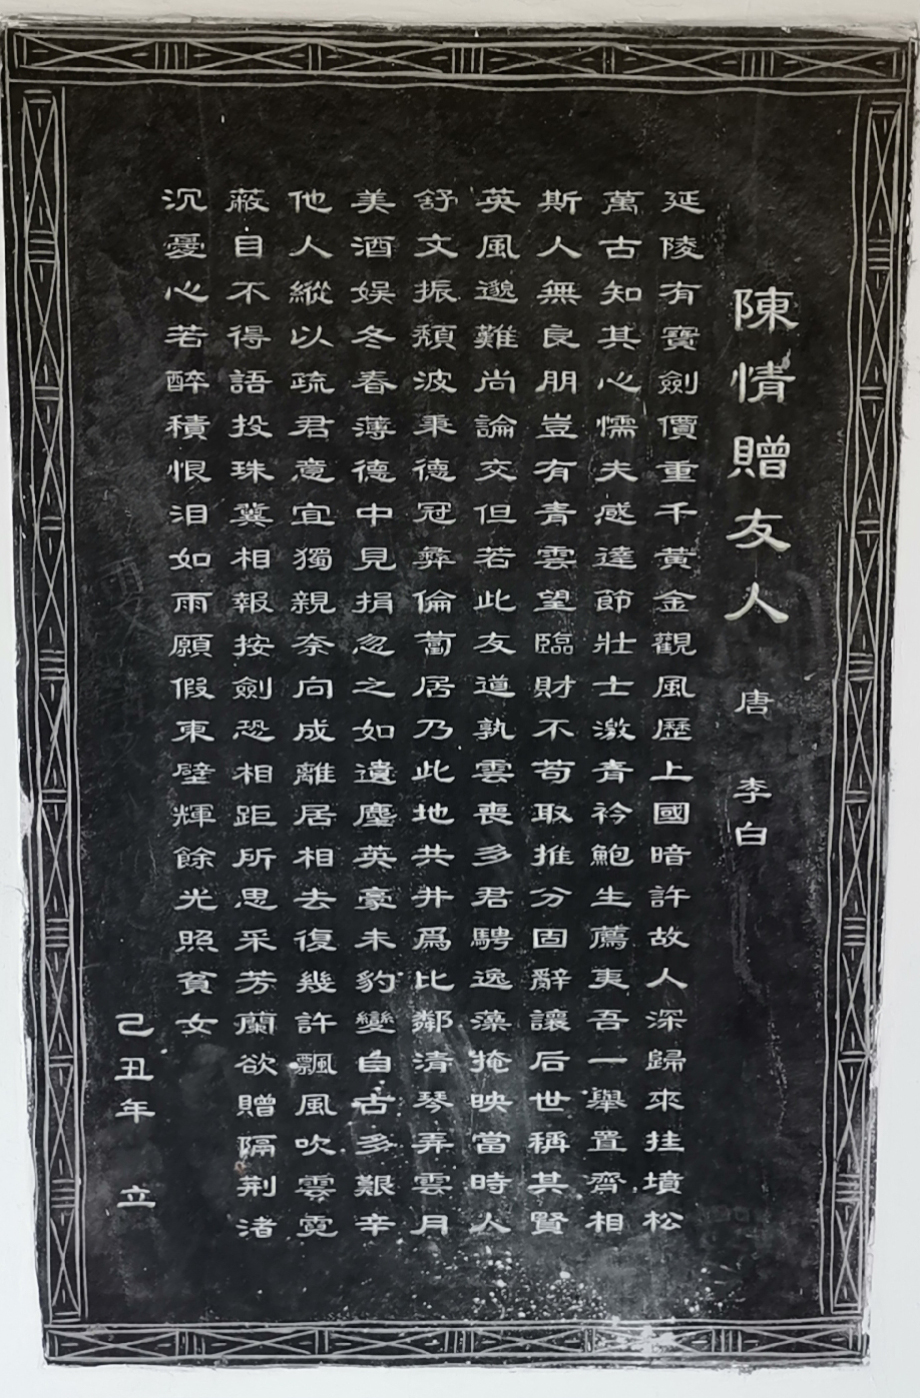 陳情贈友人 唐 李白
延陵有寶劍價重千黃金觀風歷上國暗許故人深歸來挂墳松
萬古知其心懦夫感達節壯士激青衿鮑生薦夷吾一舉置濟相
斯人無良朋豈有青雲望臨財不苟取推分固辭讓后世稱其賢
英風邈難尚論交但若此友道孰雲喪多君騁逸藻掩映當時人
舒文振頹波秉德冠彝倫蔔居乃此地共井爲比鄰清琴弄雲月
美酒娱冬春薄德中見捐忽之如遺塵英豪未豹變自古多艱辛
他人縱以疏君意宜獨親奈向成離居相去復幾許飄風吹雲霓
蔽目不得語投珠冀相報按劍恐相距所思采芳蘭欲贈隔荆渚
沉憂心若醉積恨泪如雨願假東壁輝餘光照貧女
己丑年 立